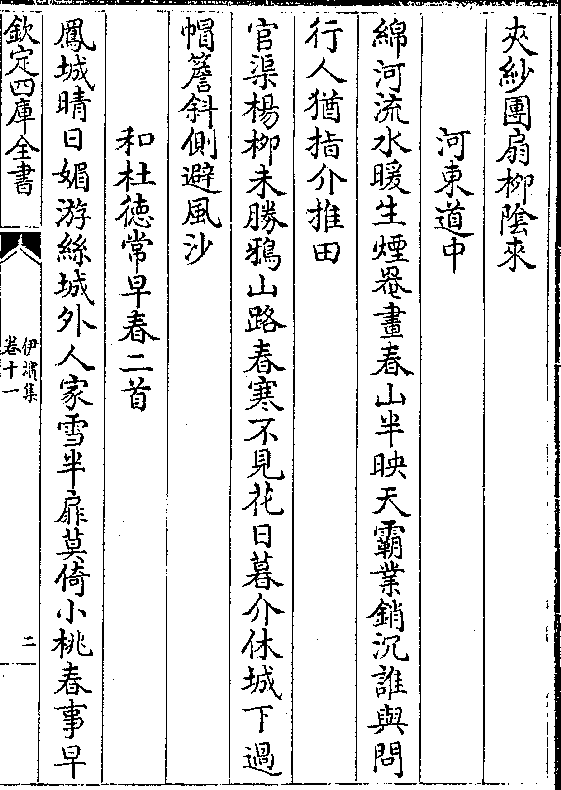 夾紗團扇柳陰來
河東道中
綿河流水暖生煙罨畫春山半映天霸業銷沉誰與問
行人猶指介推田
官渠楊柳未勝鴉山路春寒不見花日暮介休城下過
帽簷斜側避風沙
和杜德常早春二首
鳳城晴日媚游絲城外人家雪半扉莫倚小桃春事早
欽定四庫全書
伊濱集
卷十一
二